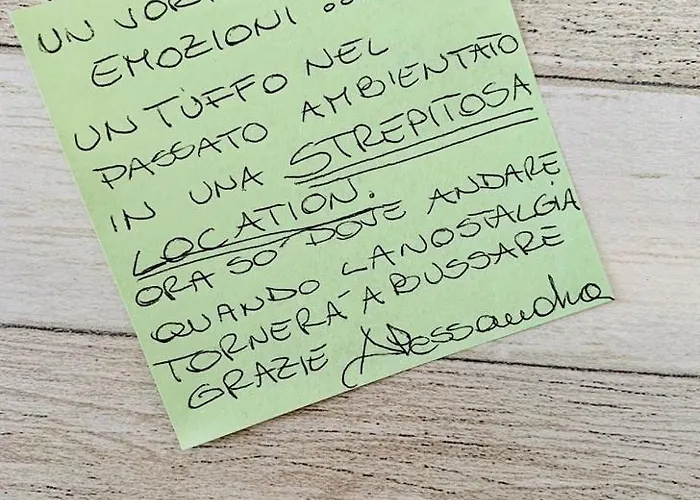 UN
EMOZIONI ...
UN TUFFO NEL
PASSATO AMBIENTATO
IN UNA STREPITOSA
LOCATION.
ORA SO' DOVE ANDARE
QUANDO LA NOSTALGIA
TORNERA' A BUSSARE
GRAZIE Alessandra